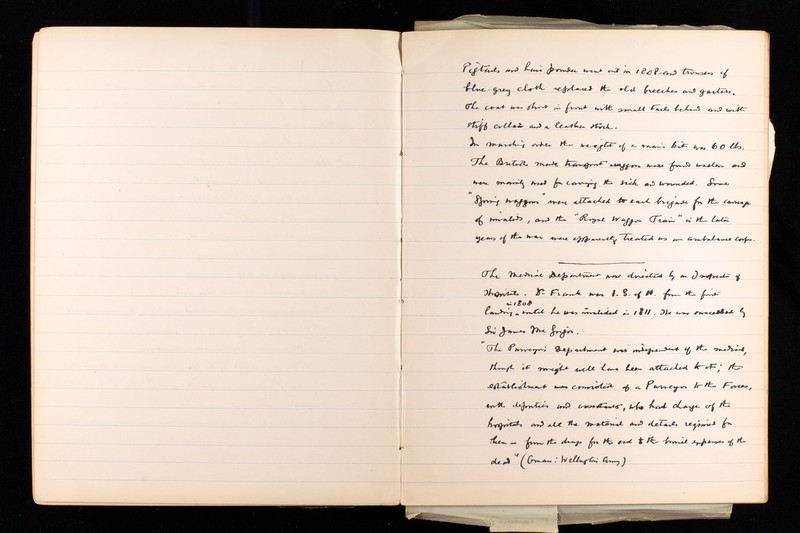 Pigtails and hair powder went out in 1808 and trousers of
blue-grey cloth replaced the old breeches and gaiters.
The coat was short in front with small tails behind and with
stiff collar and a leather stock.
In marching order the weight of a man's kit was 60 lbs.
The British made transport waggons were found useless and
were mainly used for carrying the sick and wounded. Some
"Spring waggons" were attached to each brigade for the carriage
of invalids, and the "Royal Waggon Train" in the later
years of the war were apparently treated as an ambulance corps.
The Medical Department was directed by an Inspector of
Hospitals. Dr Frank was I. G. of H. from the first
landing in 1808 until he was invalided in 1811. He was succeeded by
Sir James McGrigor.
"The Purveyors Department was independent of the medical,
though it might well have been attached to it; the
establishment was consisted of a Purveyor to the Forces,
with deputies and assistants, who had charge of the
hospitals and all the material and details required for
them — from the drugs for the sick to the burial expenses of the
dead" (Oman: Wellington's Army)